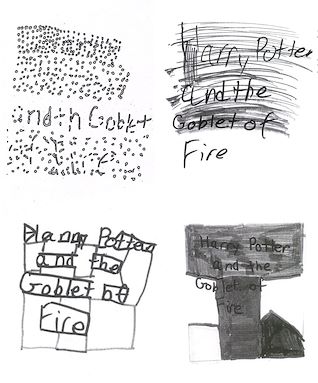 and th Goblet
Harry Potter
and the
Goblet of
Fire
Harry Potter
and the
Goblet of
Fire
Harry Potter
and the
Goblet of
Fire